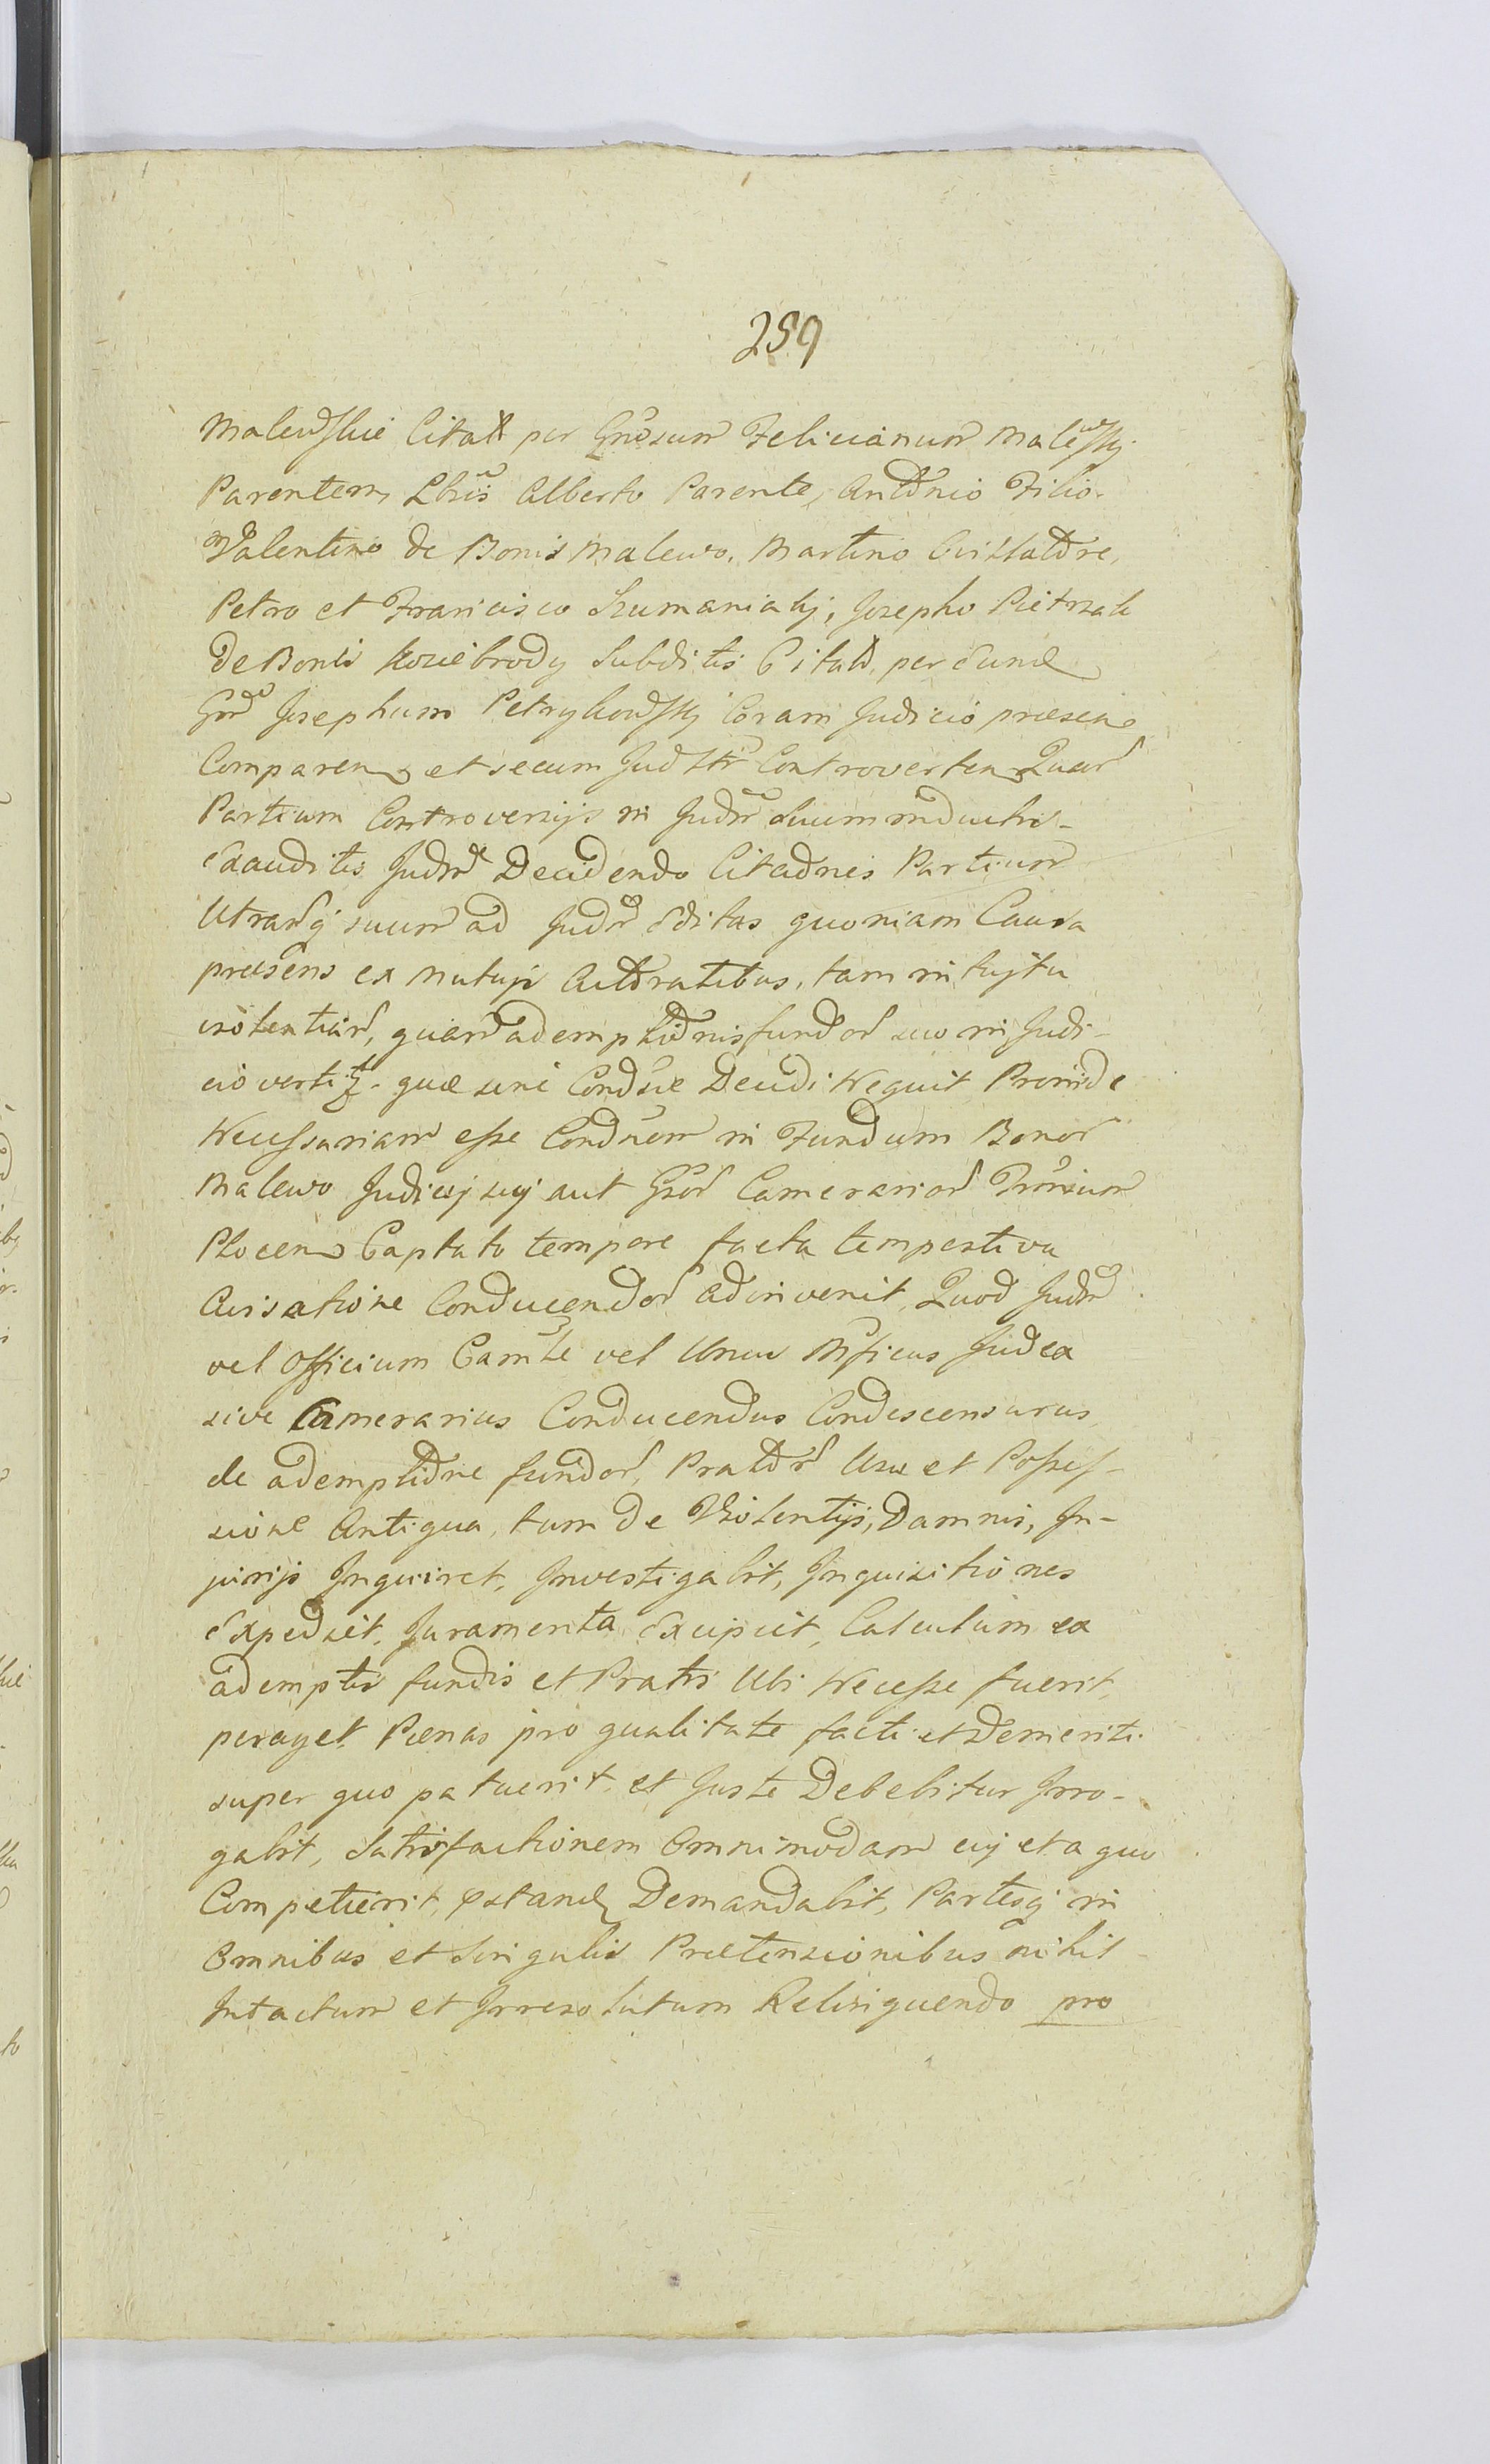 259
Malewskie Citatt per Gnosum Felicianum Malewskj
Parentem, Lbris Alberto Parente, Antonio Filio.
Valentino de Bonis Malewo, Martino
Petro et Francisco Szumaniakj, Josepho Pietrzak
De Bonis Koziebrody Subditis Citatt. per Eund
Gnd Josephum Petrykowskj Coram Judicio præsen
Comparen et secum Jud Controverten Quar
Partium Controversijs in Judm suum inductis
Exauditis Judm Decidendo Citaones Partium
Utrarq suum ad Judm Editas quoniam Causa
præsens ex mutuis tam intuitu
violentiar, quam ademptionis fundor suo in Judi-
cio vertit. quæ sine Condsne Decidi Nequit Proinde
Necessariam esse Condnem in Fundum Bonor
Malewo Judicij sui aut Gsor Camerarior Trium
Plocen Captato tempore facta tempestiva
Avisatione Conducendor adinvenit, Quod Judm
vel Officium Camle vel Unus Mficus Judex
sive Camerarius Conducendus Condescensurus
de ademptione fundor, Pratorr Usu et Posses-
sione Antiqua, tum de Violentijs, Damnis, In-
jurijs Inquiret, Investigabit, Inquisitiones
Expediet, Juramenta Excipiet, Calculum ex
ademptis fundis et Pratis Ubi Necesse fuerit,
peraget, Pænas pro qualitate facti et Demeriti
super quo patuerit, et Juste Debebitur Irro-
gabit, Satisfactionem Omnimodam cuj et a quo
Competierit, præstand Demandabit, Partesq in
Omnibus et Singulis Prætensionibus nihil
Intactum et Irresolutum Relinquendo pro